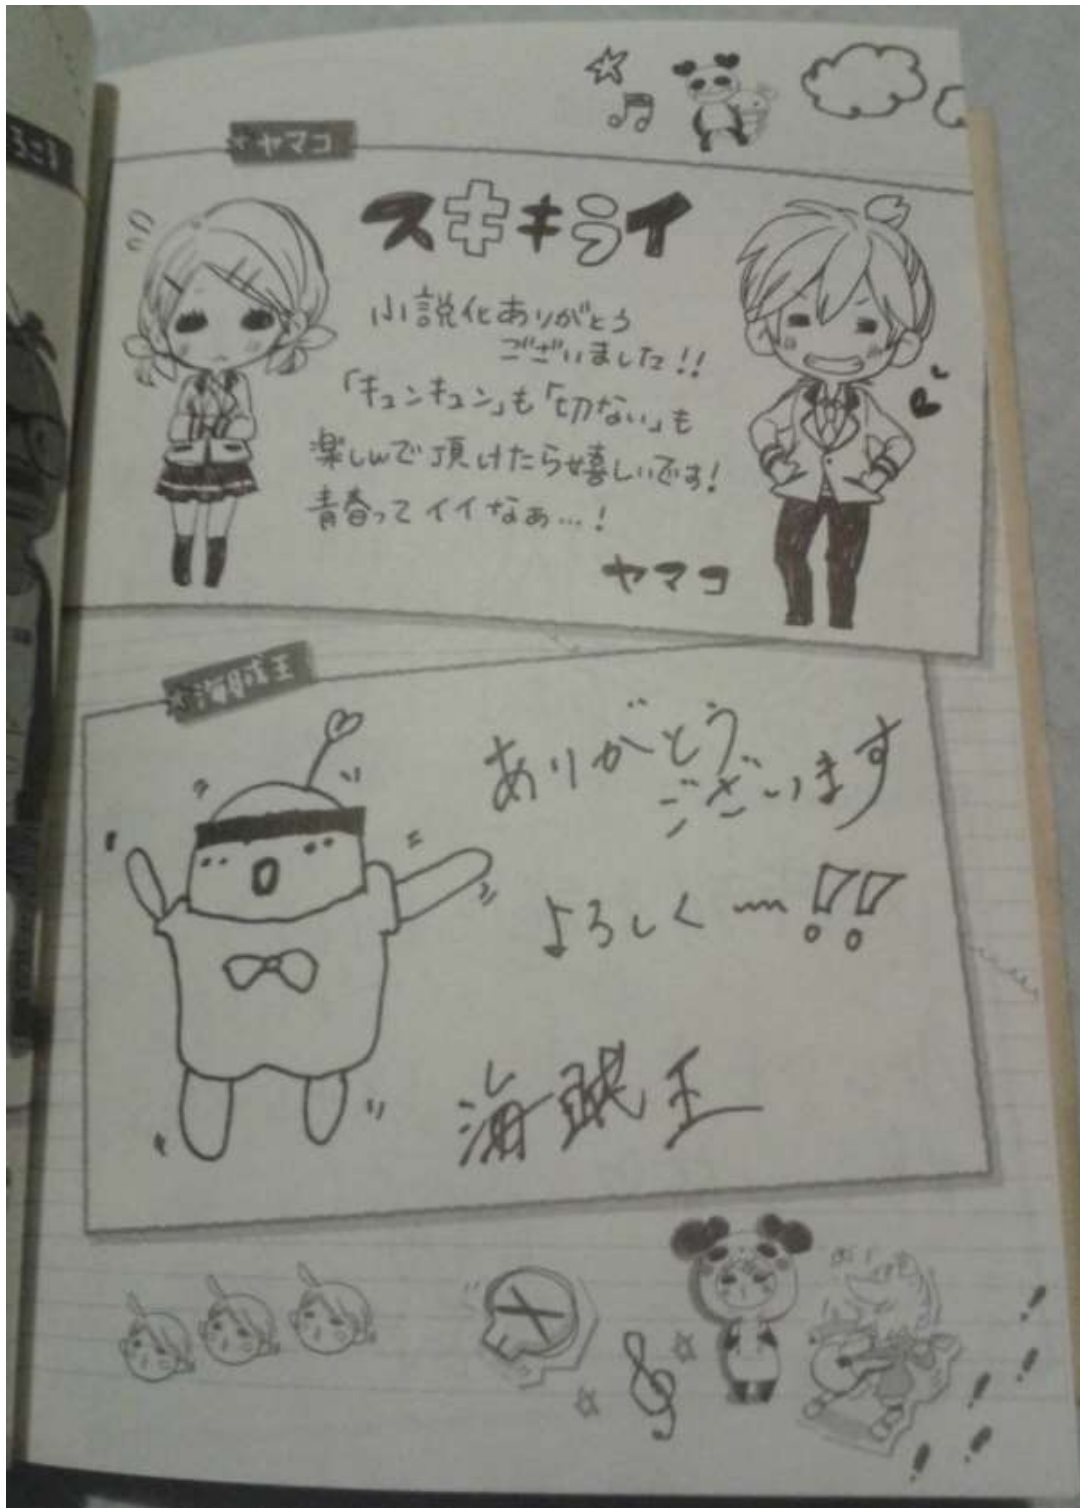 ヤマコ
スキキライ
小説化ありがとう
ございました!!
「キュンキュン」も「切ない」も
楽しんで頂けたら嬉しいです!
青春ってイイなぁ…!
ヤマコ
海賊王
ありがとう
ございます
よろしく〜!!
海賊王